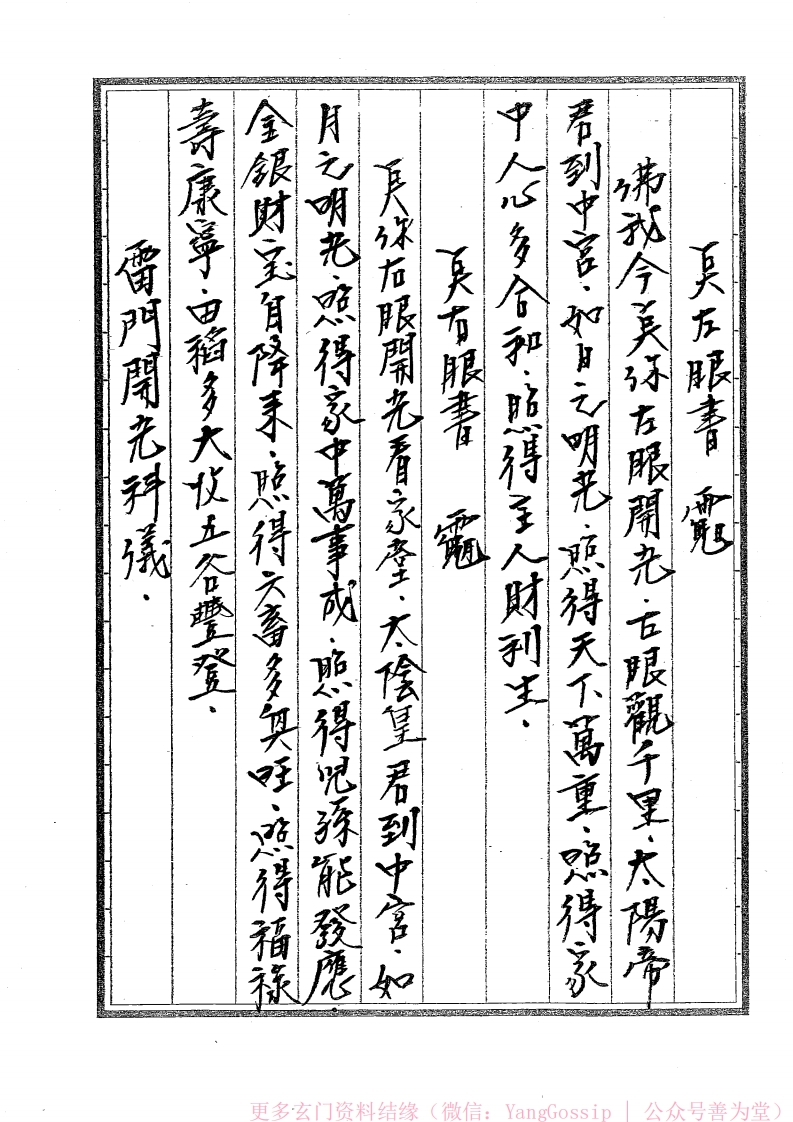 吴左眼書
沸我今吴弥左眼開光右眼觀千里、太陽帝
君到中宮、如日之明光、照得天下萬重、照得家
中人心多合和、照得主人財利生、
吴右眼書
吴弥右眼開光看家堂、太陰皇君到中宮、如
月之明光、照得家中萬事成、照得児孫能發應、
金銀財宝自降来、照得六畜多兴旺、照得福禄
壽康寧、田稻多大收五谷豐登、
雷門開光科儀、
更多玄门资料结缘（微信：YangGossip | 公众号善为堂）